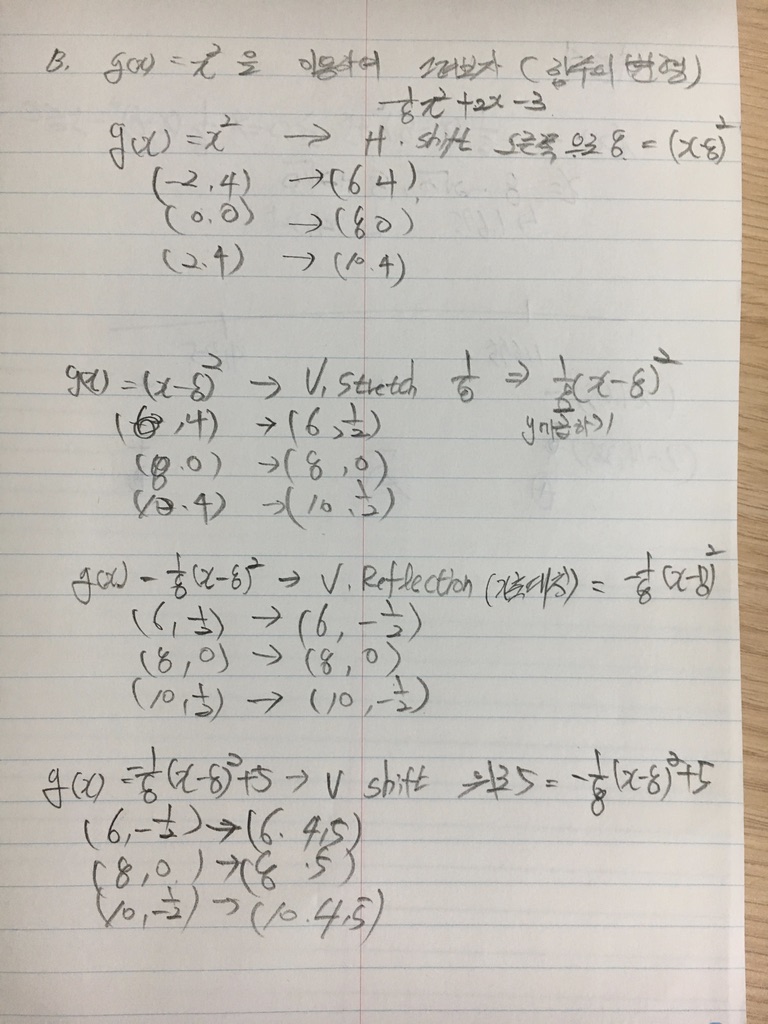 B. g(x) = x² 을 이용하여 그려보자 (함수의 변형)
-1/8x² + 2x - 3
g(x) = x² → H. shift 오른쪽으로 8 = (x-8)²
(-2, 4) → (6 4)
(0.0) → (8 0)
(2.4) → (10.4)
g(x) = (x-8)² → V. Stretch 1/8 ⇒ 1/8(x-8)²
(6, 4) → (6, 1/2)
(8.0) → (8, 0)
(10.4) → (10, 1/2)
g(x) - 1/8(x-8)² → V. Reflection (x축대칭) = -1/8(x-8)²
(6, 1/2) → (6, -1/2)
(8, 0) → (8, 0)
(10, 1/2) → (10, -1/2)
g(x) = -1/8(x-8)²+5 → V shift 위로 5 = -1/8(x-8)²+5
(6, -1/2) → (6. 4,5)
(8, 0) → (8 .5)
(10, -1/2) → (10.4,5)